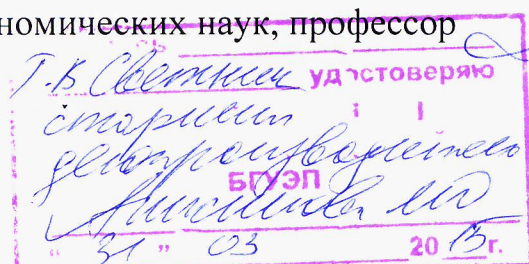 номических наук, профессор
Т.В. удостоверяю
старший
делопроизводитель
БГУЭП
" 31 " 03 2015г.